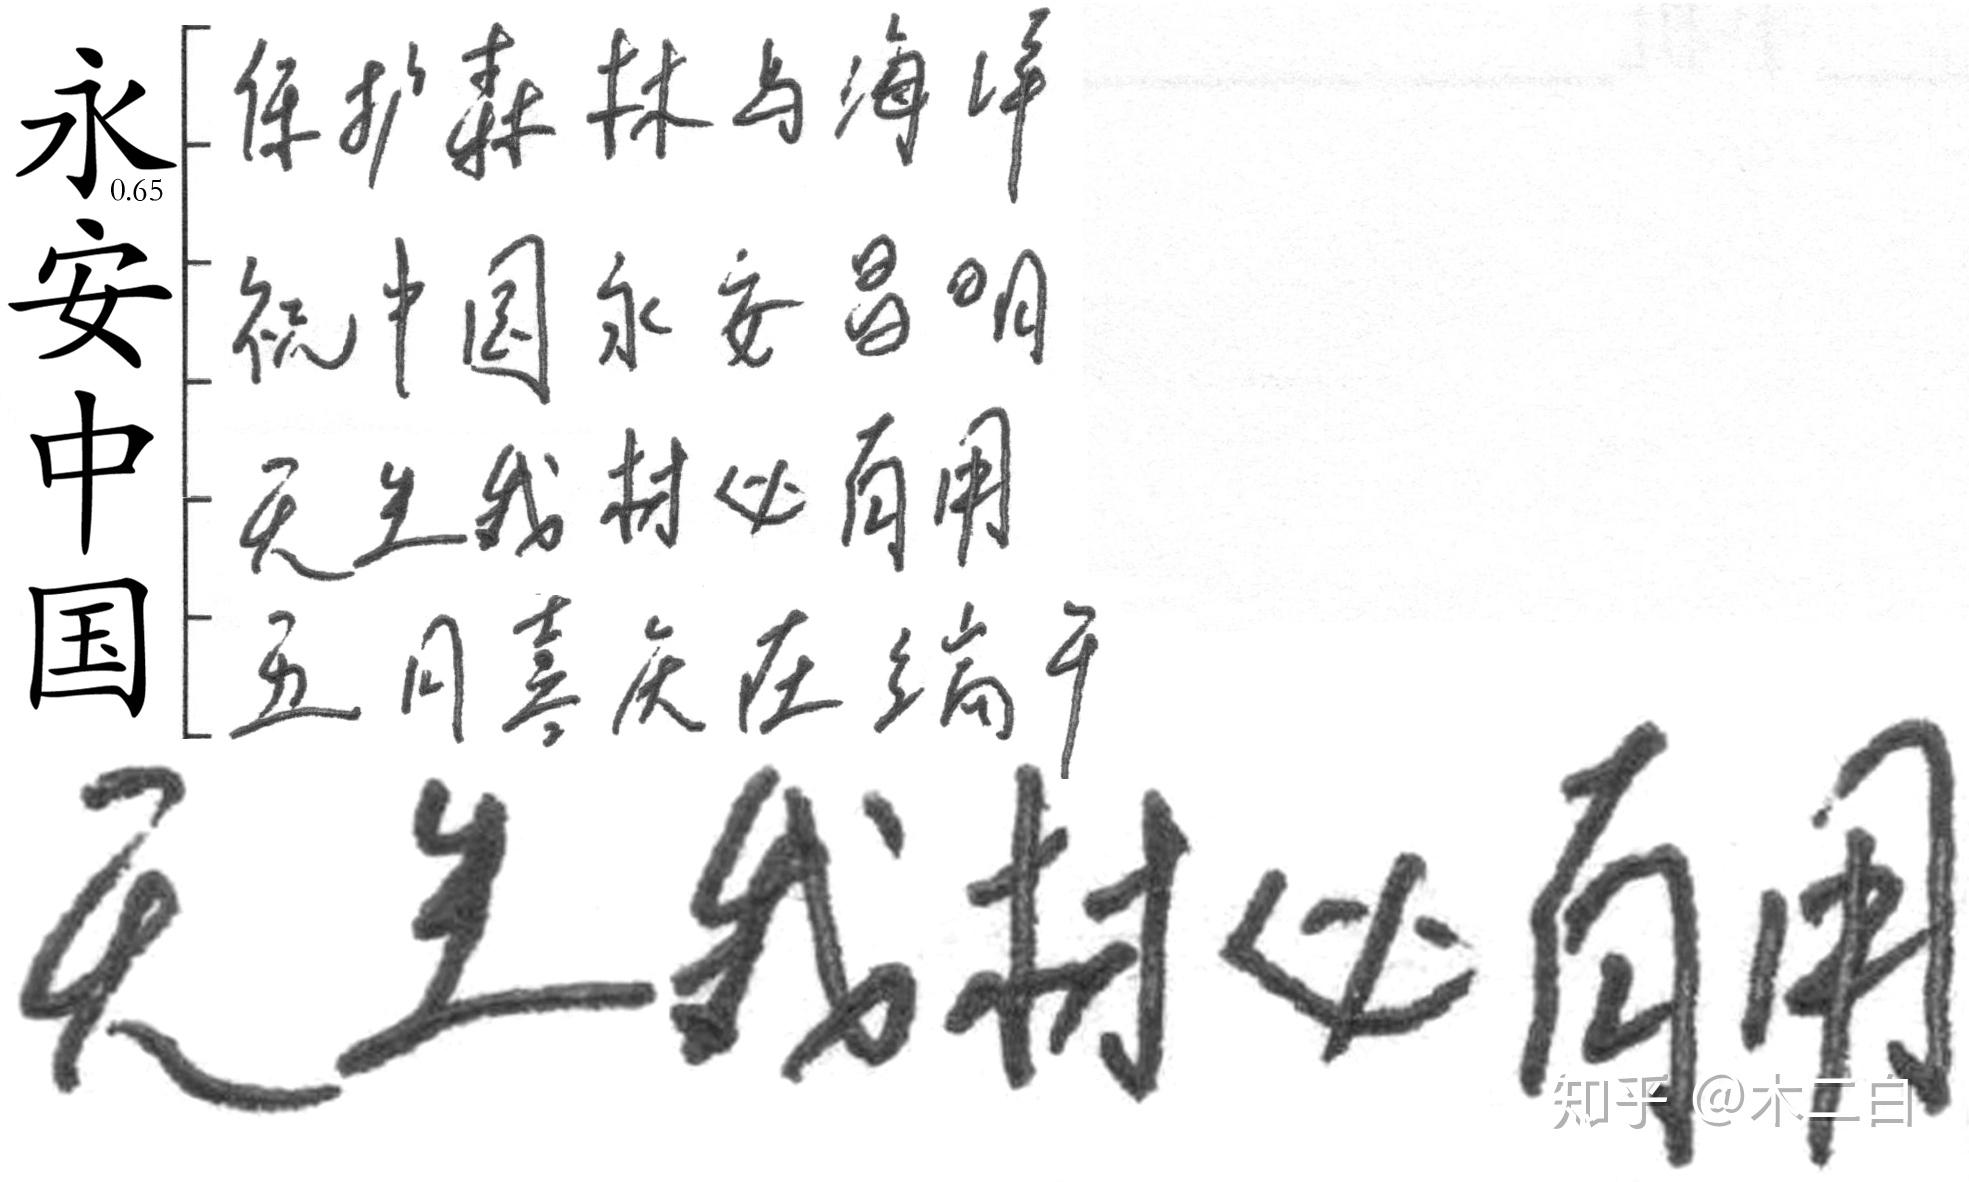 永安中国
0.65
保护森林与海洋
祝中国永安昌明
天生我材必有用
五月喜庆在端午
天生我材必有用
知乎 @木二白